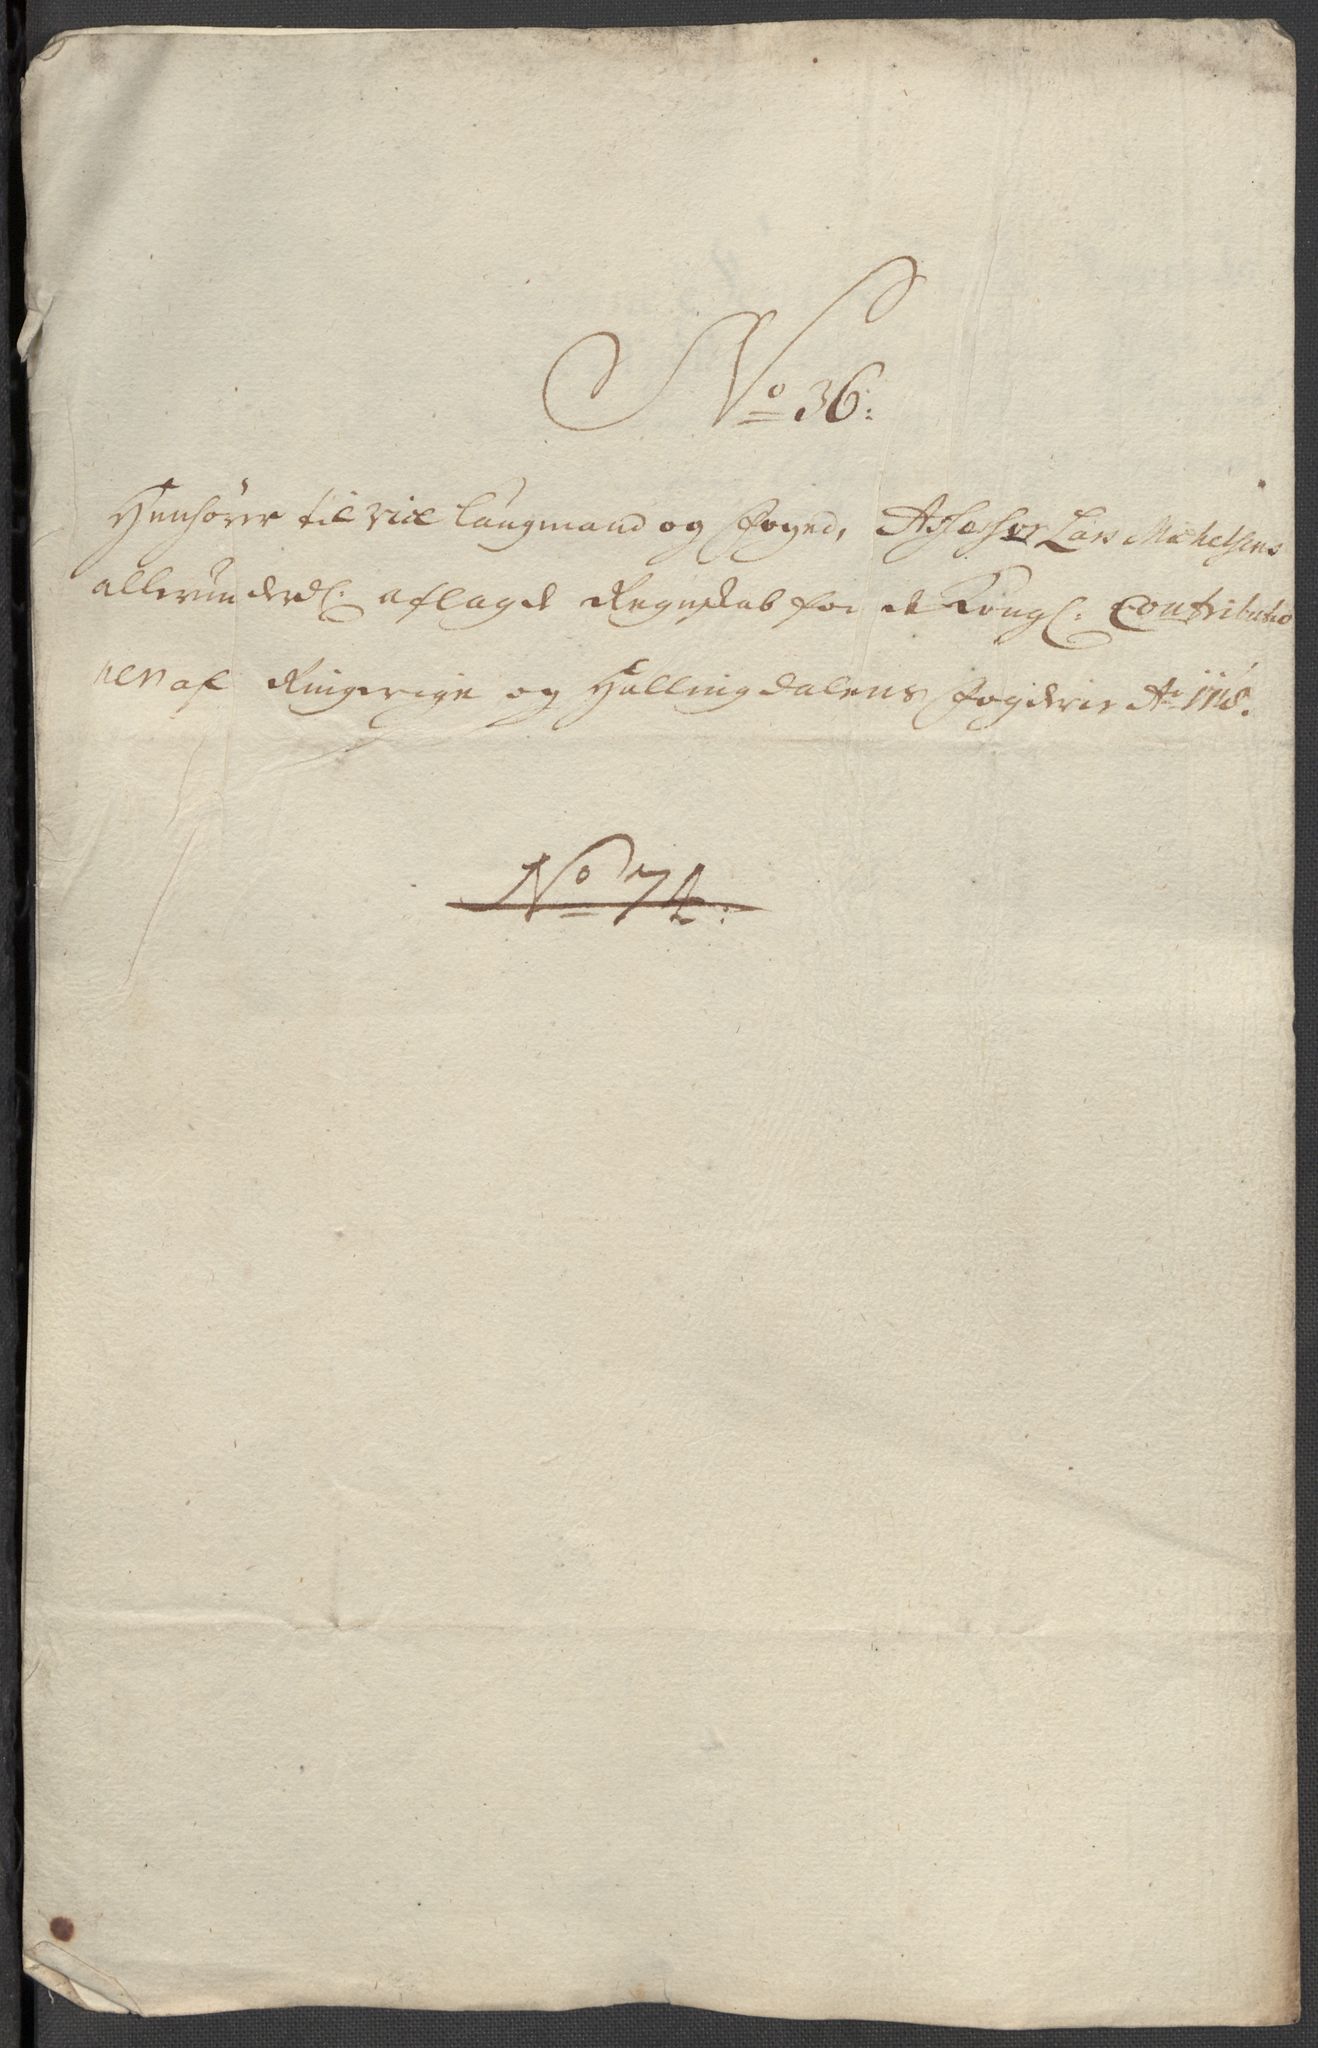 No 36:
Henhører til vice Laugmand og Foged, Assessor Lars Michelsens
allerunderd: aflagde Regnskab for de Kongl: Contributio
nen af Ringerige og Hallingdalens Fogderie Ao 1718.
No 74: